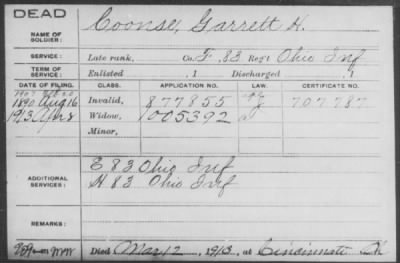 DEAD
NAME OF SOLDIER: Coonse, Garrett H.
SERVICE: Late rank, Co. F, 83 Reg't Ohio Inf
TERM OF SERVICE: Enlisted , 1 Discharged , 1
DATE OF FILING. CLASS. APPLICATION NO. LAW. CERTIFICATE NO.
1890 Aug 16 Invalid, 877855 707787
1913 Apr 8 Widow, 1005392
Minor,
ADDITIONAL SERVICES: E 83 Ohio Inf
H 83 Ohio Inf
REMARKS:
Died Mar 12, 1913, at Cincinnati O